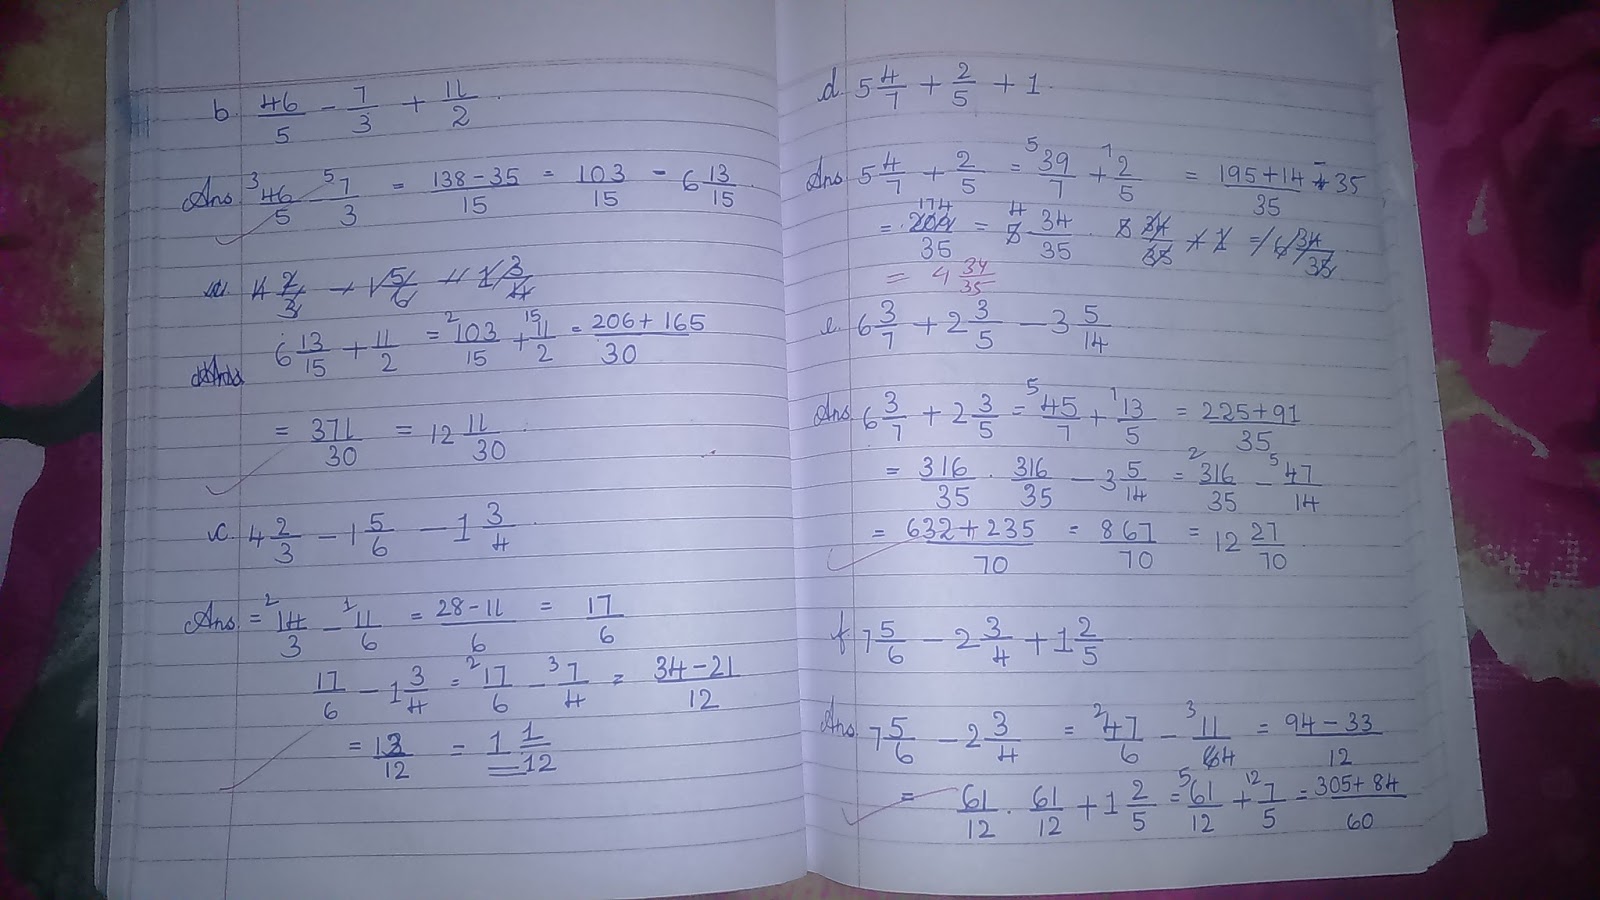 b. 46/5 - 7/3 + 11/2
Ans 3 46/5 - 5 7/3 = 138-35/15 = 103/15 = 6 13/15
4 2/3 - 1 5/6 - 1 3/4
6 13/15 + 11/2 = 2 103/15 + 15 11/2 = 206+165/30
= 371/30 = 12 11/30
c. 4 2/3 - 1 5/6 - 1 3/4
Ans = 2 14/3 - 1 11/6 = 28-11/6 = 17/6
17/6 - 1 3/4 = 2 17/6 - 3 7/4 = 34-21/12
= 13/12 = 1 1/12
d. 5 4/7 + 2/5 + 1
Ans 5 4/7 + 2/5 = 5 39/7 + 7 2/5 = 195+14-35/35
= 174/35 = 4 34/35
= 4 34/35
e. 6 3/7 + 2 3/5 - 3 5/14
Ans 6 3/7 + 2 3/5 = 5 45/7 + 7 13/5 = 225+91/35
= 316/35 . 316/35 - 3 5/14 = 2 316/35 - 5 47/14
= 632+235/70 = 867/70 = 12 27/70
f. 7 5/6 - 2 3/4 + 1 2/5
Ans 7 5/6 - 2 3/4 = 2 47/6 - 3 11/4 = 94-33/12
= 61/12 . 61/12 + 1 2/5 = 5 61/12 + 12 7/5 = 305+84/60